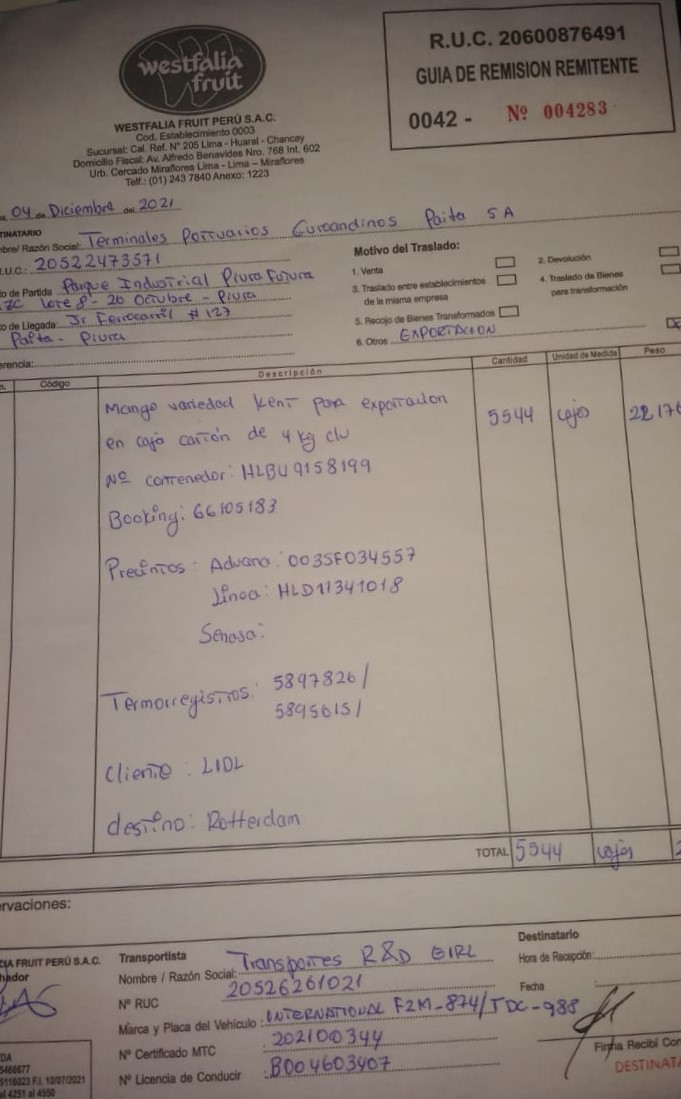 westfalia
fruit
WESTFALIA FRUIT PERÚ S.A.C.
Cod. Establecimiento 0003
Sucursal: Cal. Ref. N° 205 Lima - Huaral - Chancay
Domicilio Fiscal: Av. Alfredo Benavides Nro. 768 Int. 602
Urb. Cercado Miraflores Lima - Lima – Miraflores
Telf.: (01) 243 7840 Anexo: 1223
R.U.C. 20600876491
GUIA DE REMISION REMITENTE
0042 - Nº 004283
04 de Diciembre del 2021
TINATARIO
bre/ Razón Social: Terminales Portuarios Euroandinos Paita SA
.U.C.: 20522473571
to de Partida Parque Industrial Piura Futura
ZC lote 8 - 26 Octubre - Piura
to de Llegada: Jr Ferrocarril # 127
Paita - Piura
erencia:
Motivo del Traslado:
1. Venta
2. Devolución
3. Traslado entre establecimientos
de la misma empresa
4. Traslado de Bienes
para transformación
5. Recojo de Bienes Transformados
6. Otros EXPORTACION
n. Código Descripción Cantidad Unidad de Medida Peso
Mango variedad Kent para exportacion 5544 cajas 22,176
en caja cartón de 4 kg c/u
Nº contenedor: HLBU 9158199
Booking: 66105183
Precintos: Aduana: 0035F034557
Linea: HLD11341018
Senasa:
Termorregistros: 5897826/
5895615/
Cliente: LIDL
destino: Rotterdam
TOTAL 5544 cajas 2
ervaciones:
CIA FRUIT PERÚ S.A.C.
hador
Transportista
Nombre / Razón Social: Transportes R&D EIRL
Nº RUC 20526261021
Marca y Placa del Vehículo: INTERNATIONAL F2M-874/TDC-988
Nº Certificado MTC : 202100344
Nº Licencia de Conducir : B004603407
Destinatario
Hora de Recepción:
Fecha
Firma Recibí Con
DESTINATA
DA
5116023 F.I. 10/07/2021
el 4251 al 4550